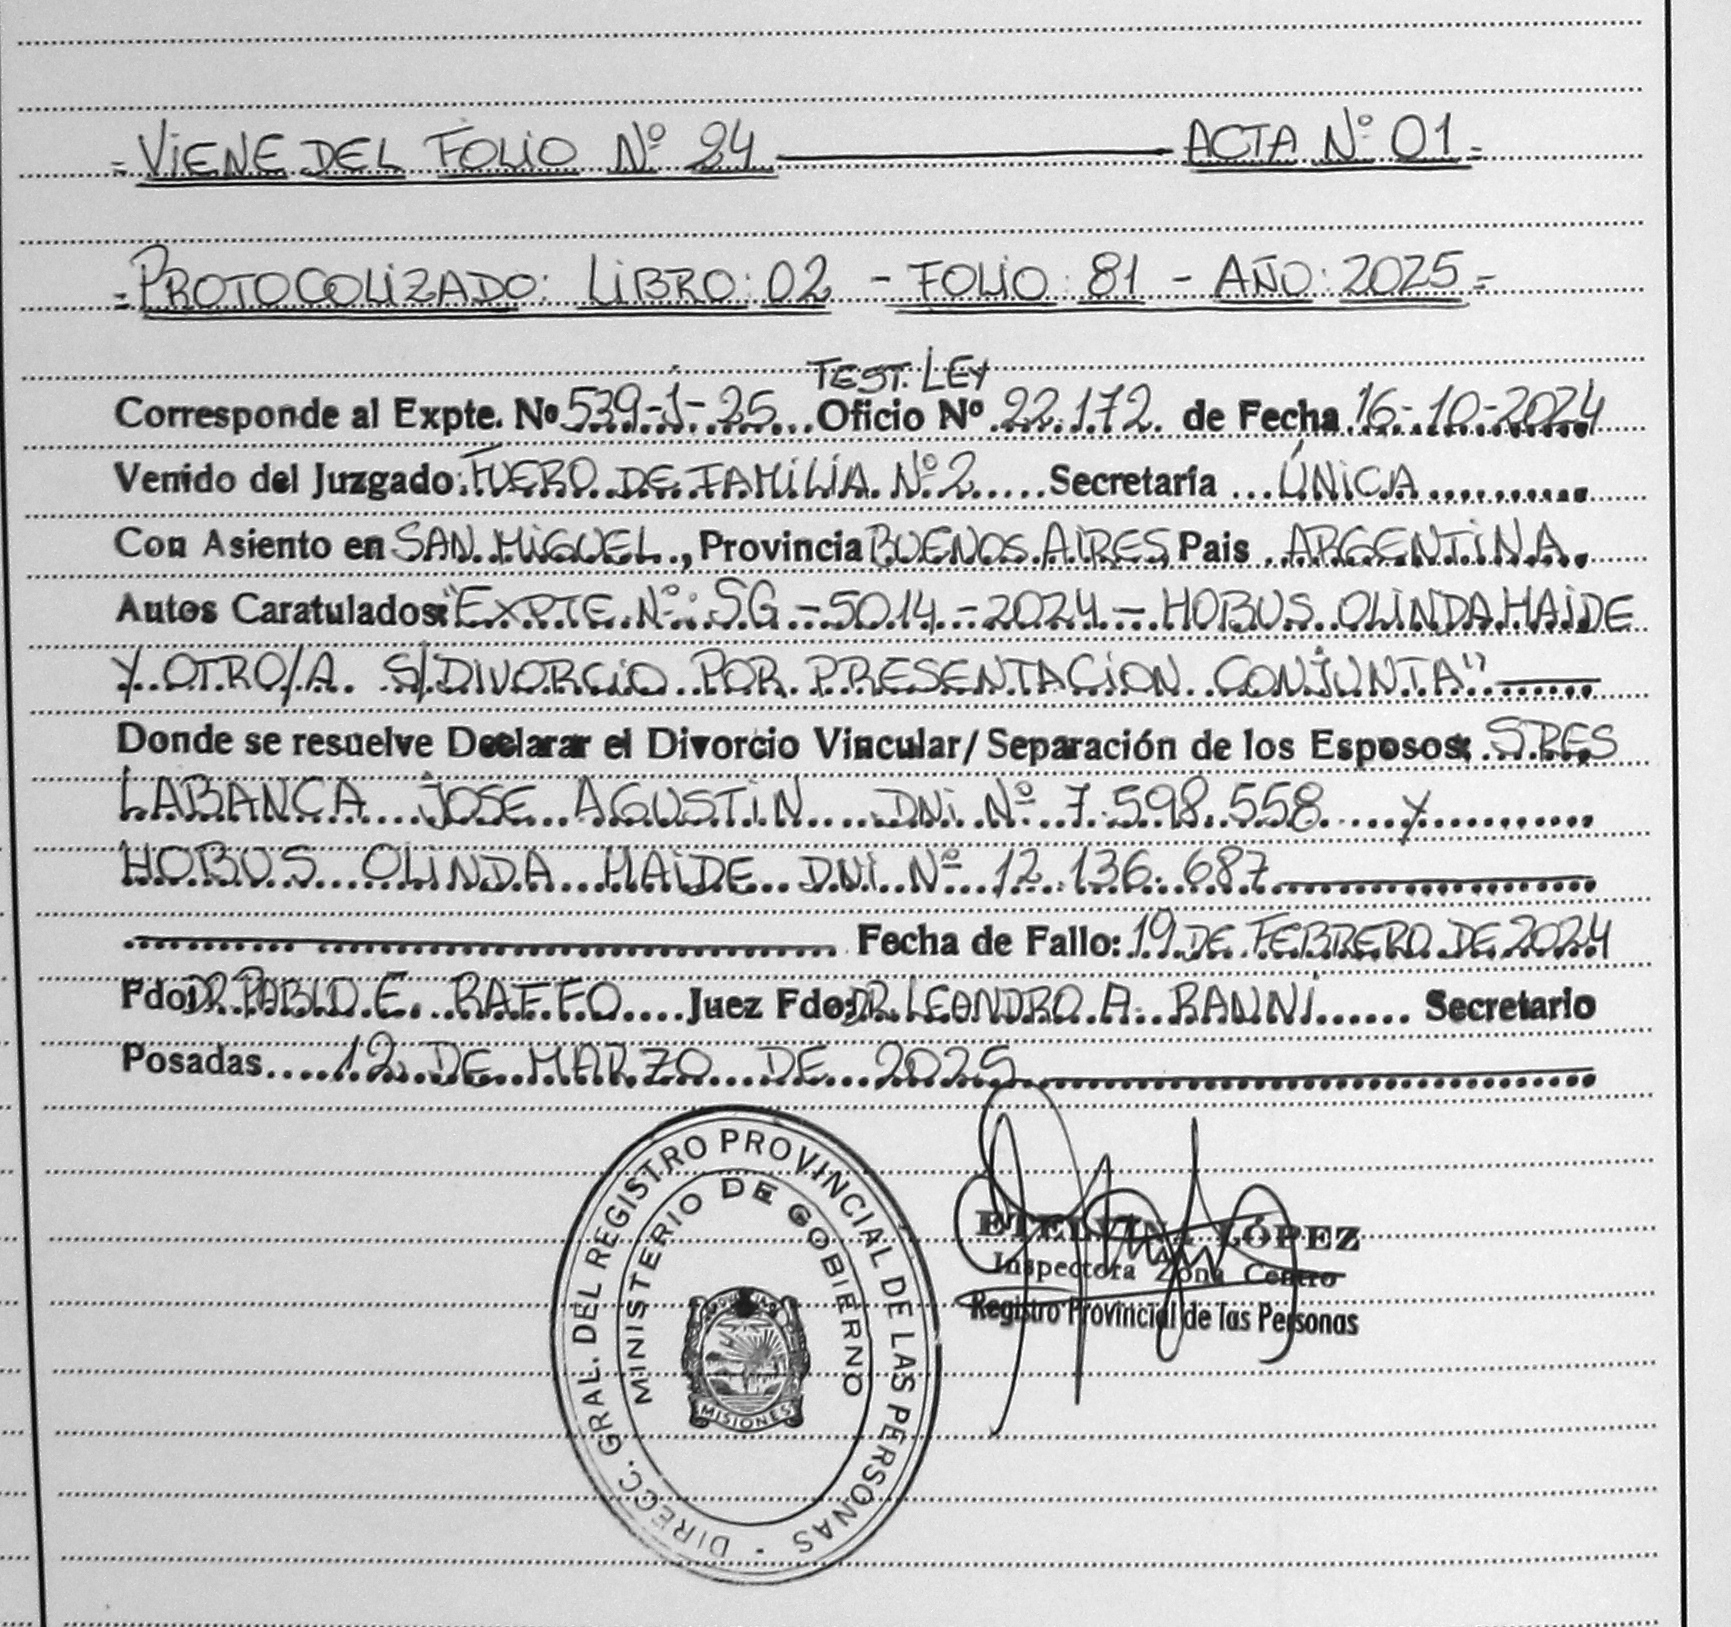 = VIENE DEL FOLIO Nº 24 ——— ACTA Nº 01 =
= PROTOCOLIZADO: LIBRO: 02 - FOLIO: 81 - AÑO: 2025 =
TEST. LEY
Corresponde al Expte. Nº 539-J-25 Oficio Nº 22.172 de Fecha 16-10-2024
Venido del Juzgado: FUERO DE FAMILIA Nº 2 Secretaría ÚNICA
Con Asiento en SAN MIGUEL, Provincia BUENOS AIRES Pais ARGENTINA.
Autos Caratulados: "EXPTE. Nº: SG - 5014 - 2024 - HOBUS OLINDA HAIDE
Y OTRO/A S/DIVORCIO POR PRESENTACION CONJUNTA"
Donde se resuelve Declarar el Divorcio Vincular/Separación de los Esposos: SRES
LABANCA JOSE AGUSTIN DNI Nº 7.598.558 y
HOBUS OLINDA HAIDE DNI Nº 12.136.687
Fecha de Fallo: 19 DE FEBRERO DE 2024
Fdo: DR. PABLO E. RAFFO Juez Fdo: DR. LEANDRO A. RANNI Secretario
Posadas 12 DE MARZO DE 2025
DIRECC. GRAL. DEL REGISTRO PROVINCIAL DE LAS PERSONAS
MINISTERIO DE GOBIERNO
MISIONES
ETELVINA LÓPEZ
Inspectora Zona Centro
Registro Provincial de las Personas